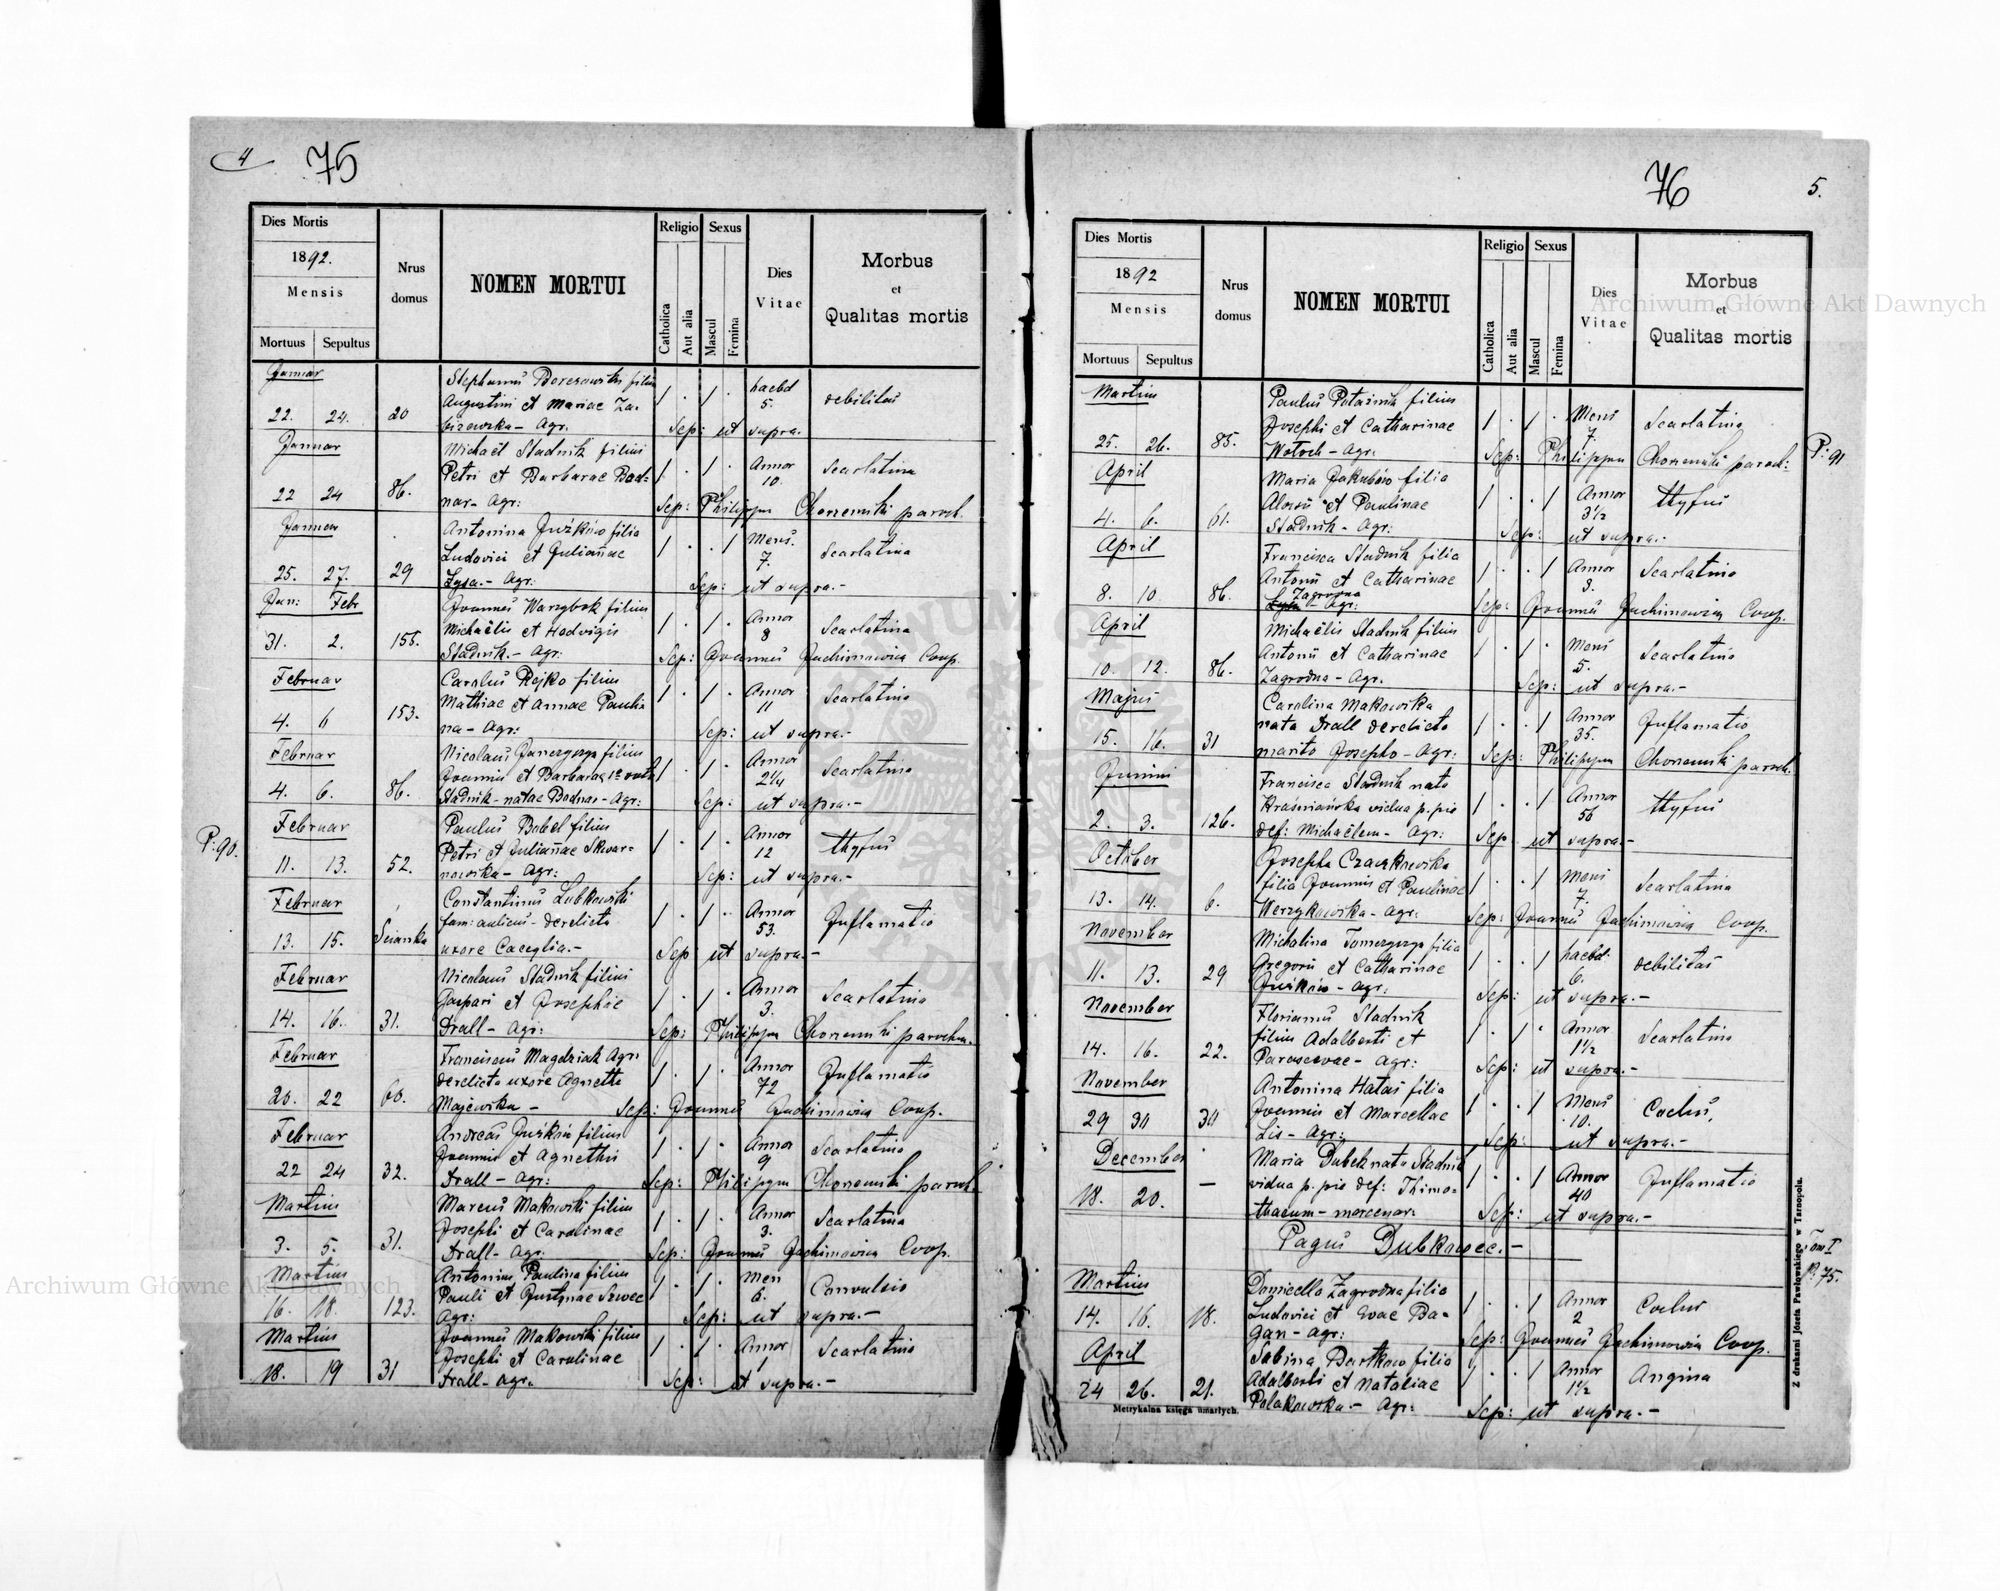 4
75
Dies Mortis
1892.
Mensis
Mortuus Sepultus
Nrus domus
NOMEN MORTUI
Religio
Catholica
Aut alia
Sexus
Mascul
Femina
Dies Vitae
Morbus
et
Qualitas mortis
Januar
Stephanus filius
Augustini et Mariae Za-
22. 24. 20 - Agr.
1 . 1 . haebd 5. debilitas
Sep: ut supra.
Januar
Michaël Stadnik filius
Petri et Barbarae Bod-
22 24 86. nar - Agr:
1 . 1 . Annor 10. Scarlatina
Sep: Philippus paroch.
Januar
Antonina Juźków filia
Ludovici et Julianae
25. 27. 29 Łysa.- Agr:
1 . . 1 Mens. 7. Scarlatina
Sep: ut supra.-
Jan: Febr
Joannes Warzybok filius
Michaëlis et Hedvigis
31. 2. 155. Stadnik.- Agr:
1 . 1 . Annor 8 Scarlatina
Sep: Joannes Jachimowicz Coop.
Februar
Carolus Rejko filius
Mathiae et Annae Pauli-
4. 6 153. na - Agr:
1 . 1 . Annor 11 Scarlatina
Sep: ut supra.-
Februar
Nicolaus filius
Joannis et Barbarae
4. 6. 86. Stadnik - natae Bodnar - Agr:
1 . 1 . Annor 2¼ Scarlatina
Sep: ut supra.-
P: 90.
Februar
Paulus Babel filius
Petri et Julianae Skwar-
11. 13. 52. nowska - Agr:
1 . 1 . Annor 12 thyfus
Sep: ut supra.-
Februar
Constantinus Lubkowski
fam: aulicus - derelicta
13. 15. Scianka uxore Caecylia.-
1 . 1 . Annor 53. Inflamatio
Sep: ut supra.-
Februar
Nicolaus Stadnik filius
Gaspari et Josephae
14. 16. 31. Drall - Agr:
1 . 1 . Annor 3. Scarlatina
Sep: Philippus
Februar
Franciscus Magdziak Agr:
derelicta uxore Agnette
20. 22 60. Majewska -
1 . 1 . Annor 72 Inflamatio
Sep: Joannes Jachimowicz Coop.
Februar
Andreas Juzków filius
Joannis et Agnethis
22 24 32. Drall - Agr:
1 . 1 . Annor 9 Scarlatina
Sep: Philippus paroch.
Martius
Marcus Makowski filius
Josephi et Carolinae
3. 5. 31. Drall - Agr:
1 . 1 . Annor 3. Scarlatina
Sep: Joannes Jachimowicz Coop.
Martius
Antonius Paulina filius
Pauli et Justinae Szwec
16. 18. 123. Agr:
1 . 1 . Men 6. Convulsio
Sep: ut supra.-
Martius
Joannes Makowski filius
Josephi et Carolinae
18. 19 31 Drall - Agr.
1 . 1 . Annor 1 Scarlatina
Sep: ut supra.-
76
5.
Dies Mortis
1892
Mensis
Mortuus Sepultus
Nrus domus
NOMEN MORTUI
Religio
Catholica
Aut alia
Sexus
Mascul
Femina
Dies Vitae
Morbus
et
Qualitas mortis
Martius
Paulus filius
Josephi et Catharinae
25. 26. 85. Wołoch - Agr.
1 . 1 . Mens 7. Scarlatina
Sep: Philippus paroch:
P: 91
April
Maria Jakubów filia
Aloisii et Paulinae
4. 6. 61. Stadnik - Agr:
1 . . 1 Annor 3½ thyfus
Sep: ut supra.-
April
Francisca Stadnik filia
Antonii et Catharinae
Zagrodna
8. 10. 86. Łysa - Agr:
1 . . 1 Annor 3. Scarlatina
Sep: Joannes Jachimowicz Coop.
April
Michaëlis Stadnik filius
Antonii et Catharinae
10. 12. 86. Zagrodna - Agr.
1 . 1 . Mens 5. Scarlatina
Sep: ut supra.-
Majus
Carolina Makowska
nata Drall derelicto
15. 16. 31 marito Josepho - Agr:
1 . . 1 Annor 35. Inflamatio
Sep: Philippus paroch.
Junius
Francisca Stadnik nata
Kraśniańska vidua p. pie
2. 3. 126. def: Michaëlem - Agr:
1 . . 1 Annor 56 thyfus
Sep ut supra.-
October
Josepha Czaczkowska
filia Joannis et Paulinae
13. 14. 6. Werzykowska - Agr:
1 . . 1 Mens 7. Scarlatina
Sep: Joannes Jachimowicz Coop.
November
Michalina filia
Gregorii et Catharinae
11. 13. 29 Juzków - Agr:
1 . . 1 haebd. 6. debilitas
Sep: ut supra.-
November
Florianus Stadnik
filius Adalberti et
14. 16. 22. Parascevae - Agr:
1 . 1 . Annor 1½ Scarlatina
Sep: ut supra.-
November
Antonina Hałas filia
Joannis et Marcellae
29 30 30 Lis - Agr:
1 . . 1 Mens 10. Coclus.
Sep: ut supra.-
December
Maria Dubek nata Stadnik
vidua p. pie def: Thimo-
18. 20. - thaeum - mercenar:
1 . . 1 Annor 40 Inflamatio
Sep: ut supra.-
Pagus Dubkowce.-
Tom I
p. 75.
Martius
Domicella Zagrodna filia
Ludovici et Evae Ba-
14. 16. 18. gan - Agr:
1 . . 1 Annor 2 Coclus
Sep: Joannes Jachimowicz Coop.
April
Sabina Bartkow filia
Adalberti et Nataliae
24 26. 21. Polakowska.- Agr:
1 . . 1 Annor 1½ Angina
Sep: ut supra.-
Metrykalna księga umarłych.
Z drukarni Józefa Pawłowskiego w Tarnopolu.
Archiwum Główne Akt Dawnych
Archiwum Główne Akt Dawnych